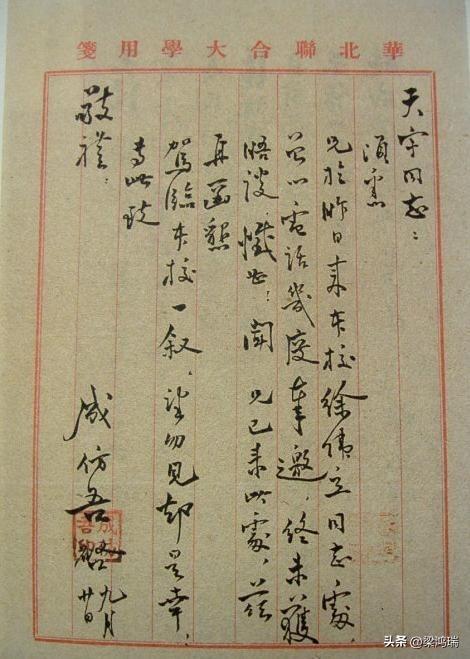 華北聯合大學用箋
天宇同志：
頃悉
兄於昨日来本校徐偉立同志處，
曾以電話幾度奉邀，終未獲
晤谈，懺甚：聞 兄已来此處，兹
再函懇
駕臨本校一叙，望勿見却是幸，
专此致
敬禮：
成仿吾
九月
廿日
头条 @梁鸿瑞